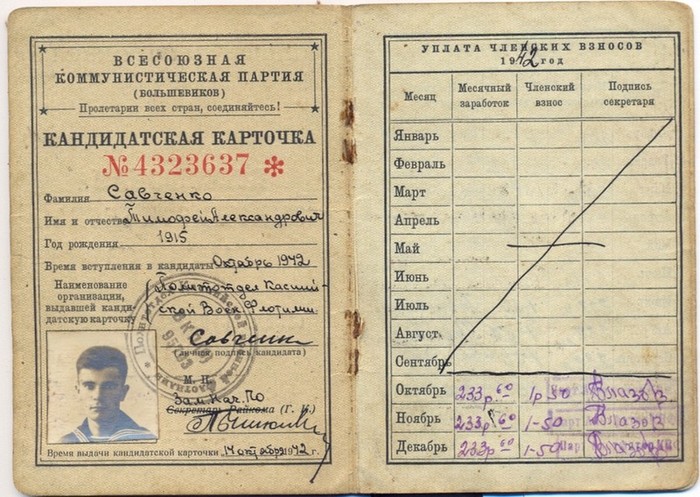 ВСЕСОЮЗНАЯ
КОММУНИСТИЧЕСКАЯ ПАРТИЯ
(БОЛЬШЕВИКОВ)
Пролетарии всех стран, соединяйтесь!
КАНДИДАТСКАЯ КАРТОЧКА
№4323637 *
Фамилия Савченко
Имя и отчество Тимофей Александрович
Год рождения 1915
Время вступления в кандидаты Октябрь 1942
Наименование организации, выдавшей кандидатскую карточку Политотдел Каспийской Воен. Флотилии
Савченко
(личная подпись кандидата)
М. П.
Зам. Нач. ПО
Секретарь Райкома (Г. К.)
Время выдачи кандидатской карточки 14 октября 1942 г.
УПЛАТА ЧЛЕНСКИХ ВЗНОСОВ
1942 год
Месяц Месячный заработок Членский взнос Подпись секретаря
Январь
Февраль
Март
Апрель
Май
Июнь
Июль
Август
Сентябрь
Октябрь 233р 60 1р 50
Ноябрь 233р 60 1-50
Декабрь 233р 60 1-50